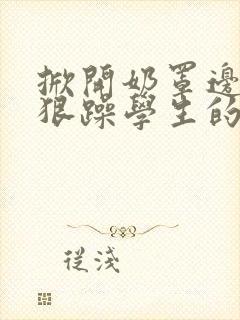 掀開奶罩邊
狠躁學生的
從淺